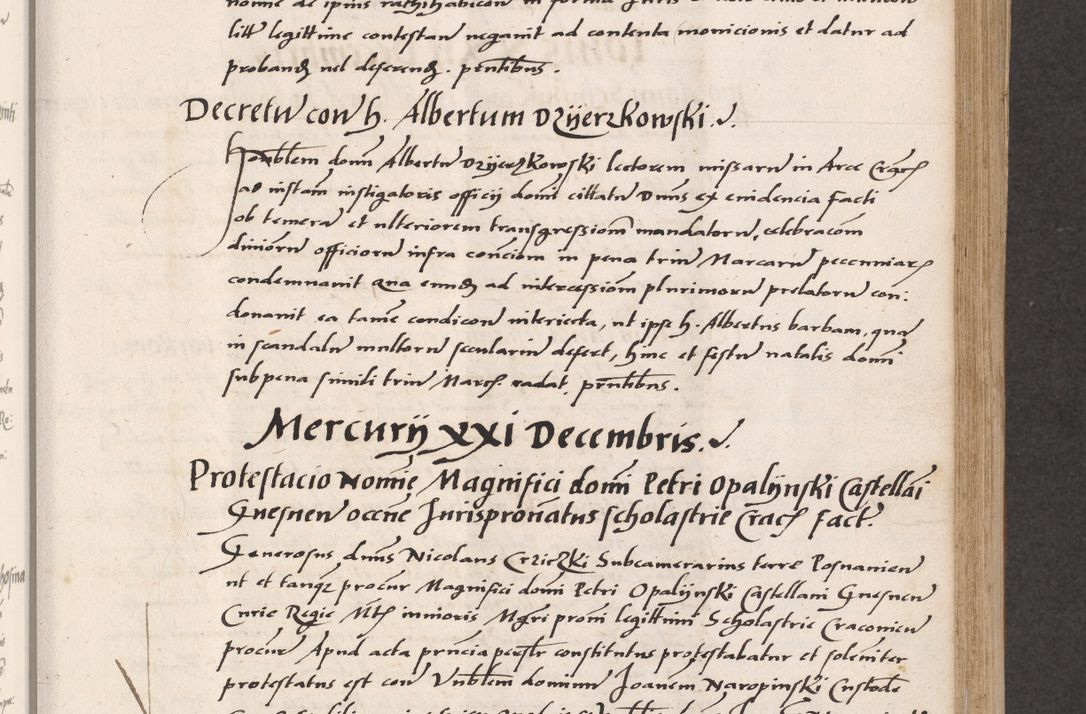 litt legittime contestan negauit ad contenta monicionis et datur ad
proband vel deferend. pntibus.
Decretu con h. Albertum Dzyerzkowski.
Honoblem domi Albertu Dzyerzkowski lectorem missaru in Arce Crac
ad instam instigatoris officij domi cittatu Dnus ex euidencia facti
ob temera et ulteriorem transgressiom mandatoru, celebracom
diuioru officioru infra conciom in pena triu Marcaru peccuniar
condemnauit qua eund ad intercessiom plurimoru prelatoru con:
donauit ea tame condicon interiecta, ut ipse h. Albertus barbam, qua
in scandalu multoru seculariu defert, hinc et festu natalis domi
sub pena simili triu Marc. radat. pntibus.
Mercurij XXI Decembris.
Protestacio Nomie Magnifici domi Petri Opalynski Castellai
Gnesnen occne Jurispronatus scholastrie Crac fact.
Generosus dnus Nicolaus Crziczki Subcamerarius terre Posnanien
ut et tanq procur Magnifici domi Petri Opalynski Castellani Gnesnen
Curie Regie Mtis minoris Mgri promi legittimi Scholastrie Craconien
procur Apud acta pnncia persolr constitutus protestabatur et soleniter
protestatus est con Vnblem dominum Joanem Naropinski Custode